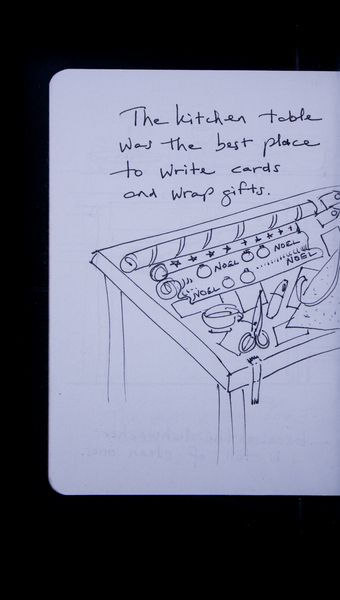 The kitchen table
was the best place
to write cards
and wrap gifts.
NOEL NOEL
NOEL NOEL